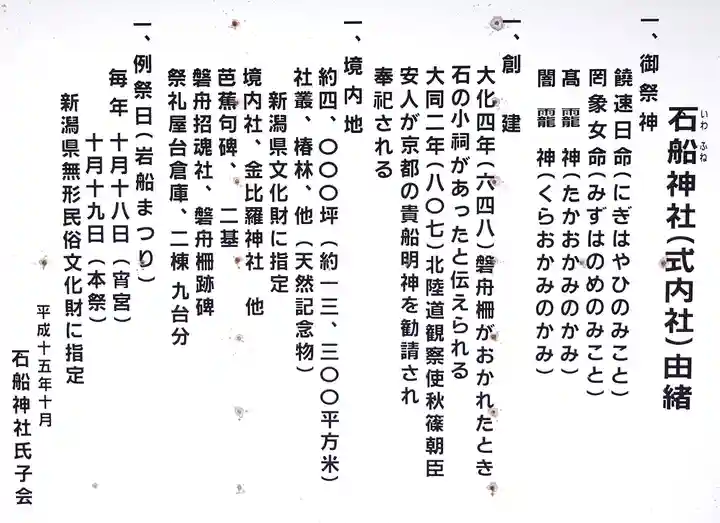 石船神社(式内社)由緒
いわ ふね
一、御祭神
饒速日命(にぎはやひのみこと)
罔象女命(みずはのめのみこと)
髙龗神(たかおかみのかみ)
闇龗神(くらおかみのかみ)
一、創建
大化四年(六四八)磐舟柵がおかれたとき
石の小祠があったと伝えられる
大同二年(八〇七)北陸道観察使秋篠朝臣
安人が京都の貴船明神を勧請され
奉祀される
一、境内地
約四、〇〇〇坪(約一三、三〇〇平方米)
社叢、椿林、他(天然記念物)
新潟県文化財に指定
境内社、金比羅神社 他
芭蕉句碑、 二基
磐舟招魂社、磐舟柵跡碑
祭礼屋台倉庫、二棟 九台分
一、例祭日(岩船まつり)
毎年 十月十八日(宵宮)
十月十九日(本祭)
新潟県無形民俗文化財に指定
平成十五年十月
石船神社氏子会